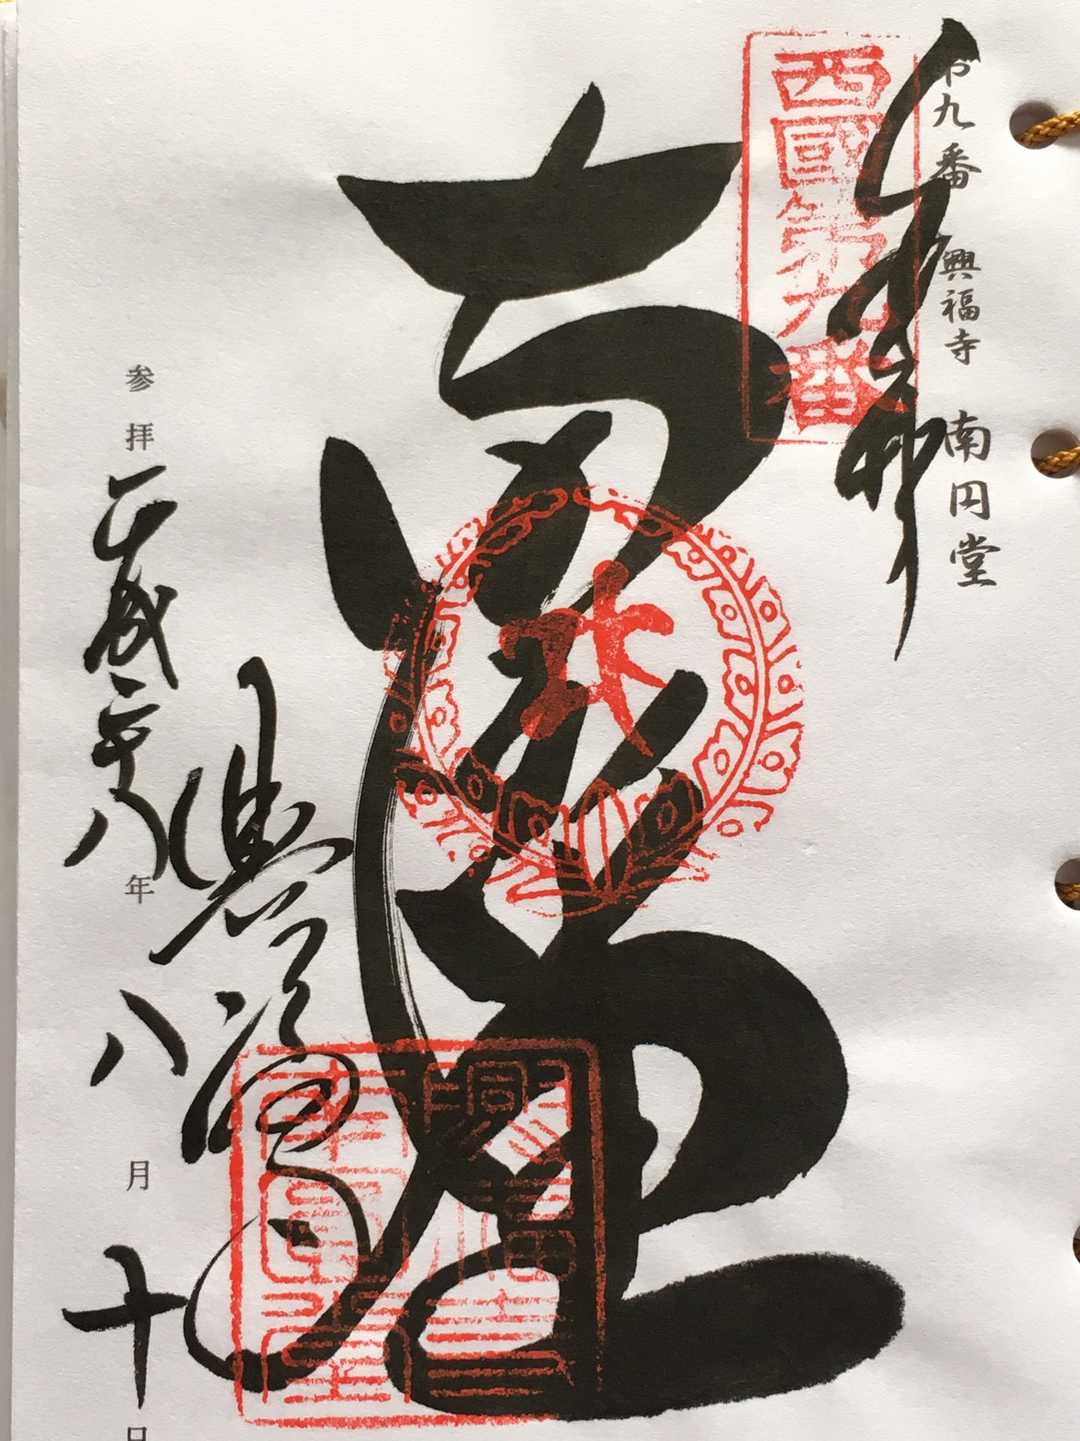 第九番 興福寺 南円堂
奉拝
西國第九番
南円堂
興福寺
南圓堂
興福寺
参拝 平成二十八年 八月 十日